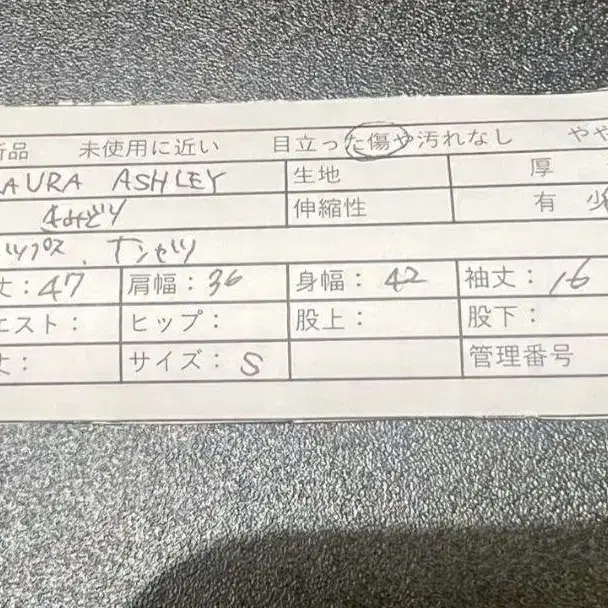 新品 未使用に近い 目立った傷や汚れなし やや
LAURA ASHLEY 生地 厚
きみどり 伸縮性 有 少
トップス、Tシャツ
丈:47 肩幅:36 身幅:42 袖丈:16
エスト: ヒップ: 股上: 股下:
丈: サイズ:S 管理番号